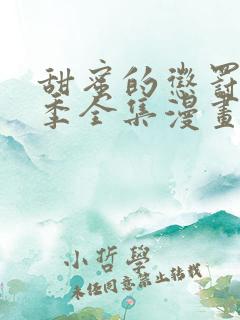 甜蜜的懲罰
季全集漫畫
小哲學
未经同意禁止转载